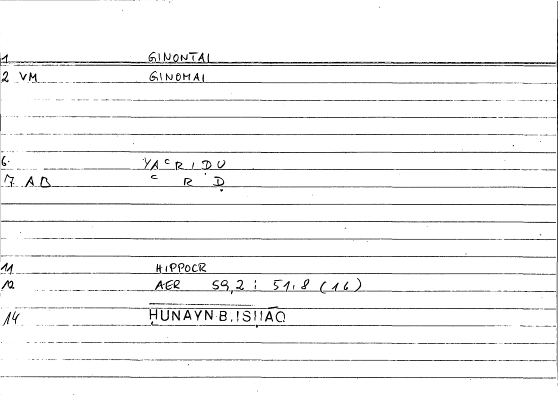 1 GINONTAI
2 VM GINOMAI
6. YAᶜRIḌU
7 AB ᶜ R Ḍ
11 HIPPOCR
12 AER 59,2 ; 51.8 (16)
14 ḤUNAYN B. ISḤAQ